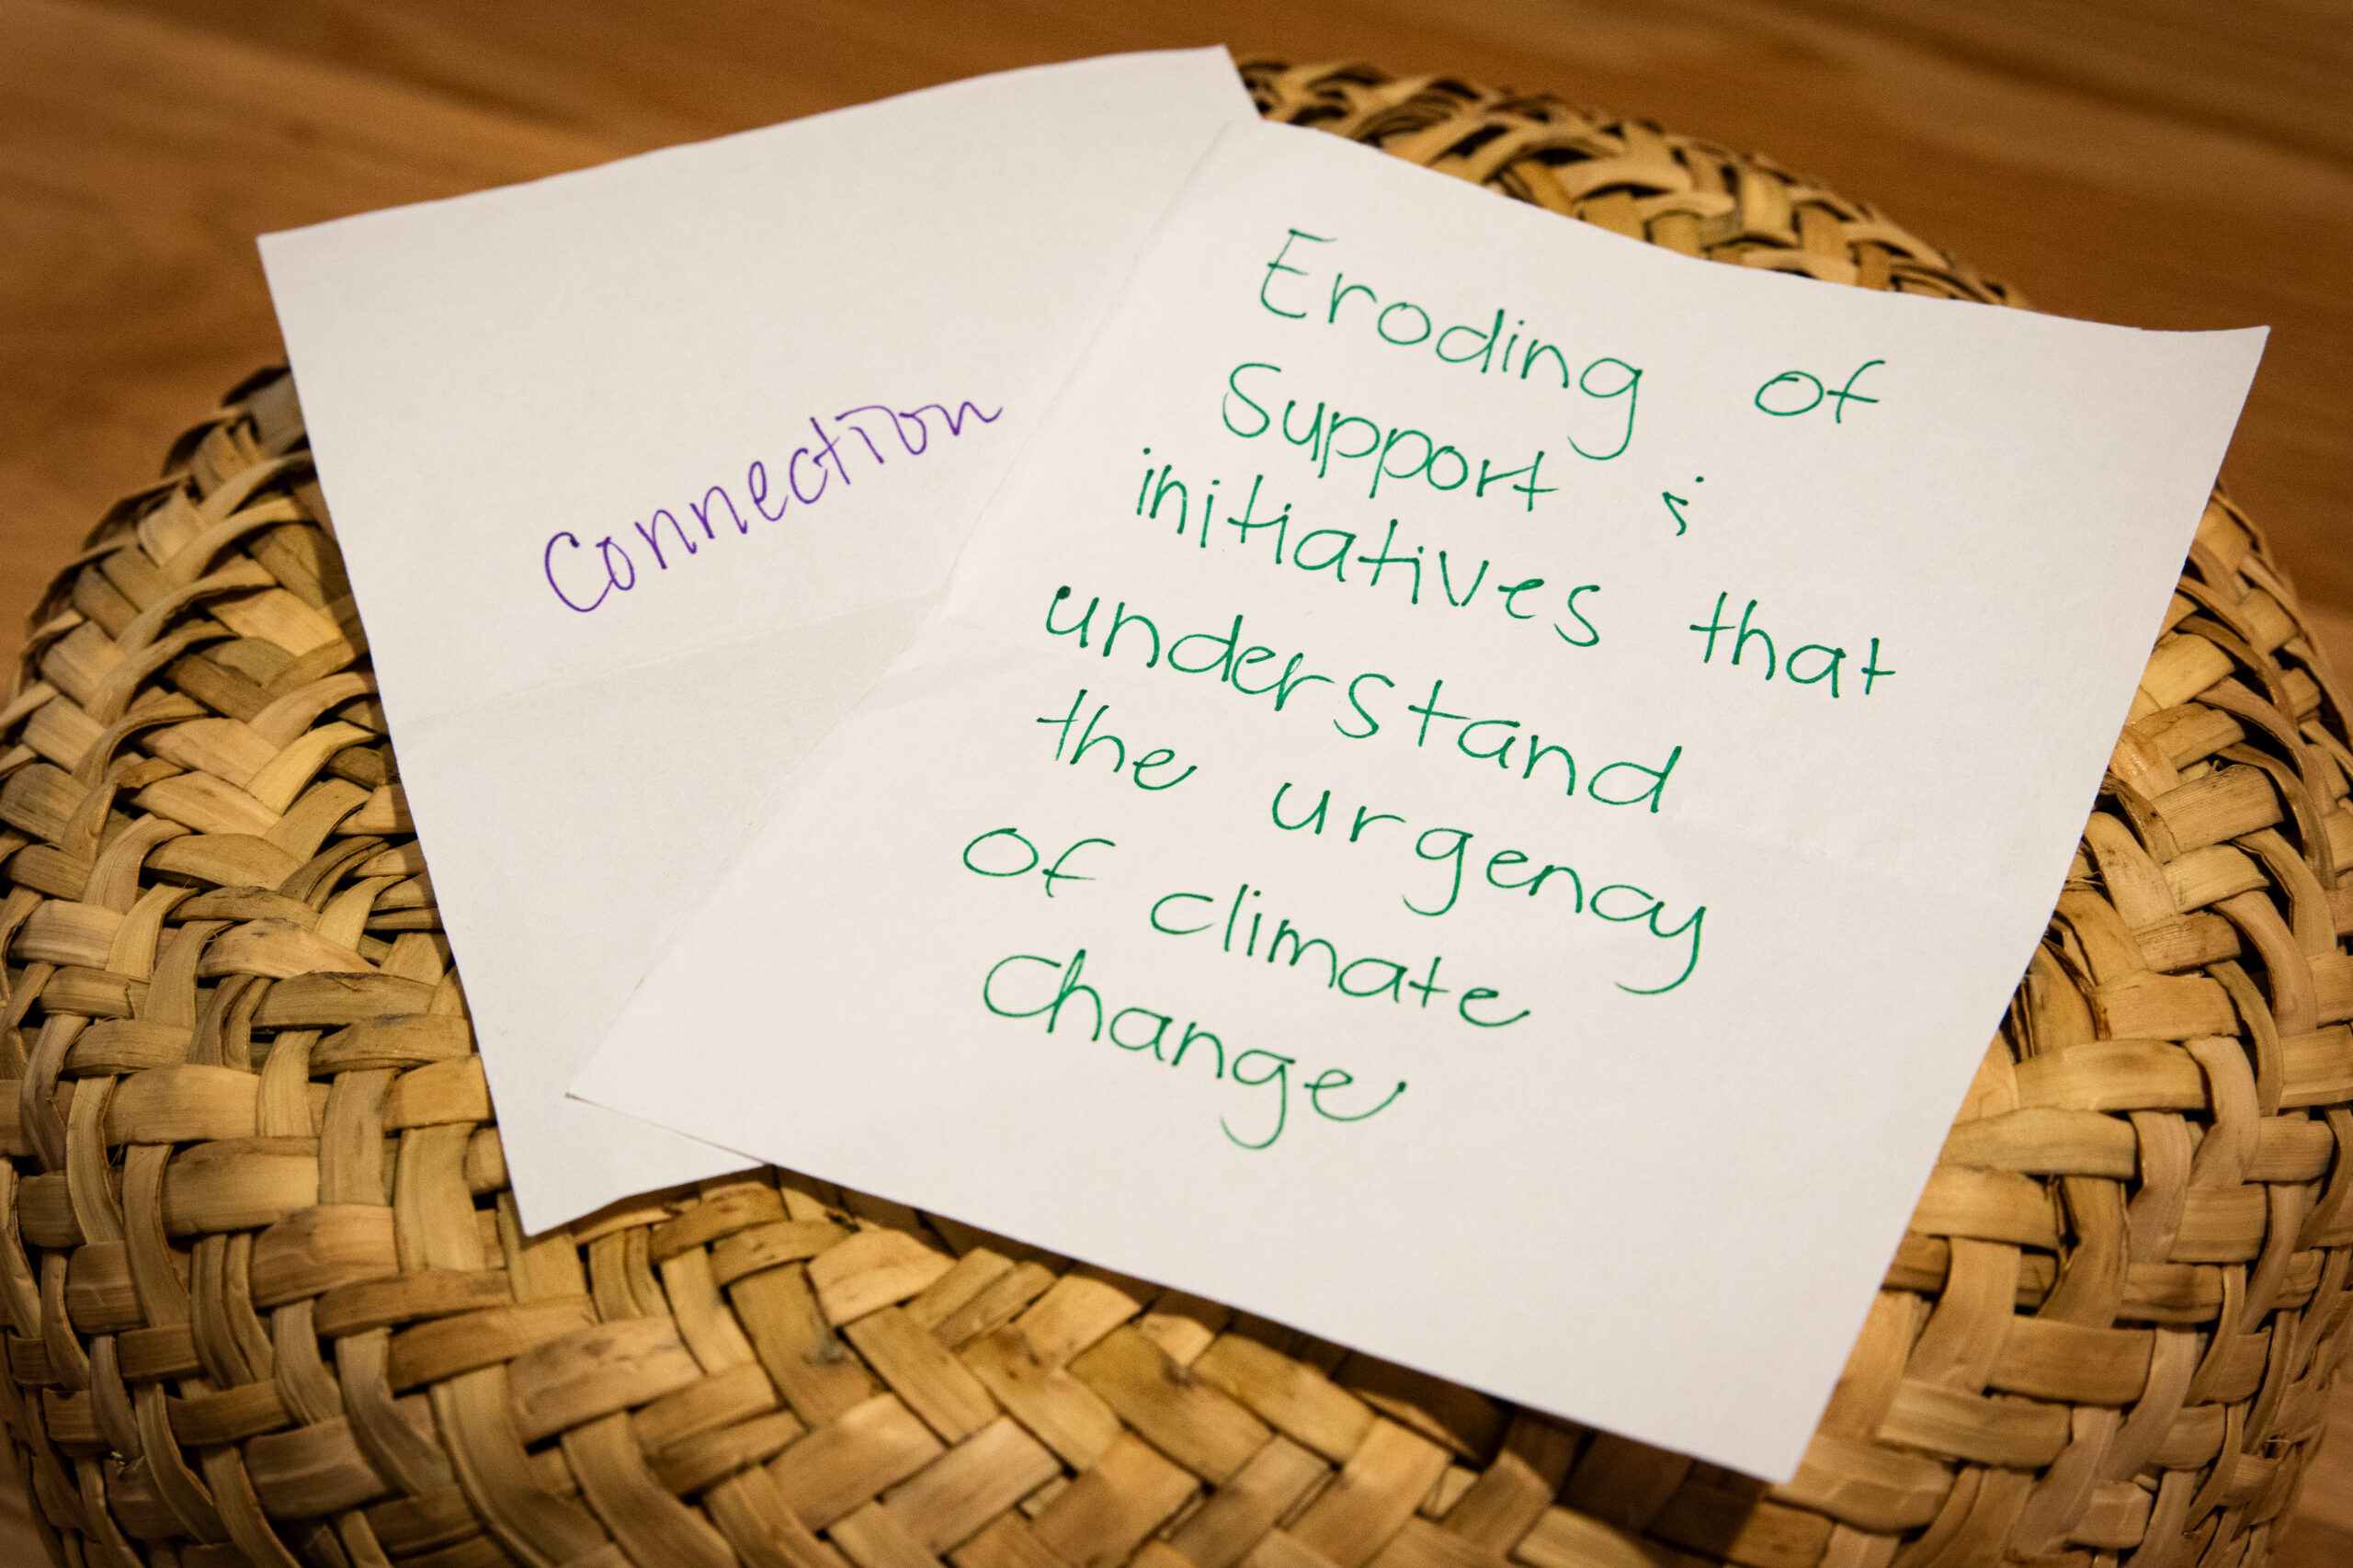 Connection
Eroding of
Support &
initiatives that
understand
the urgency
of climate
change